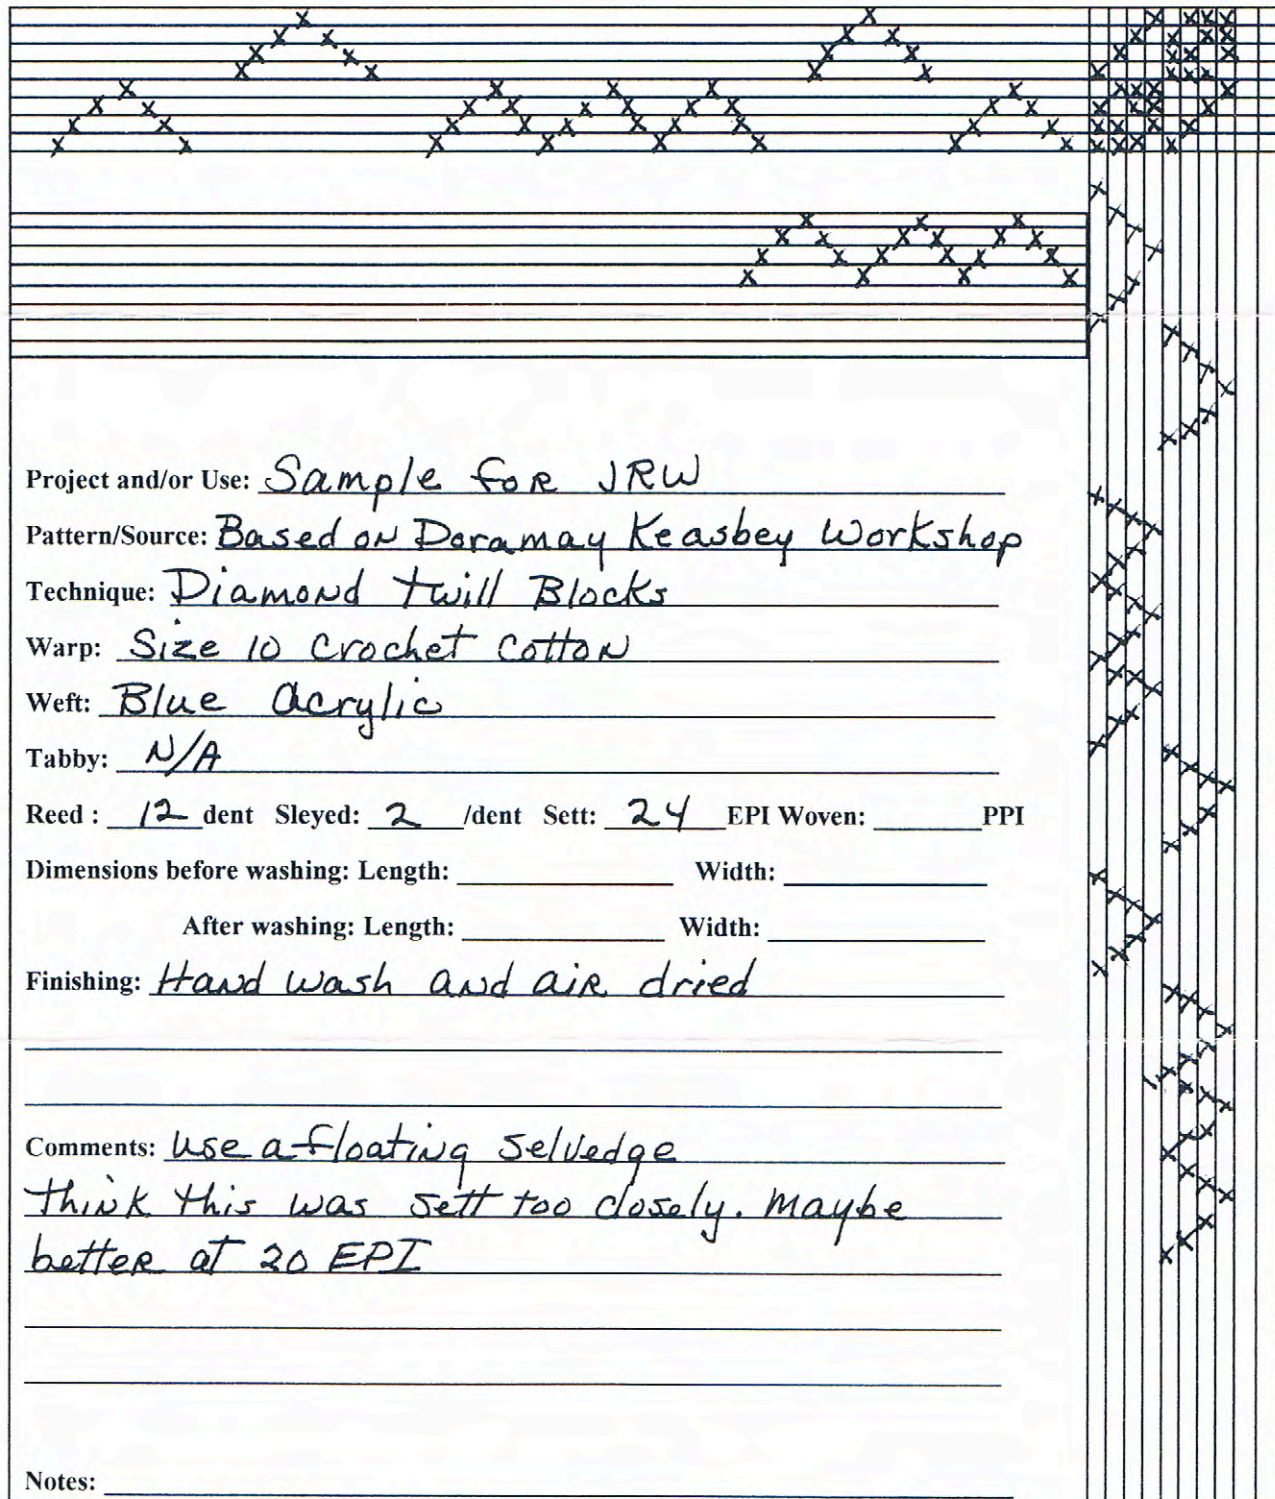 Project and/or Use: Sample for JRW
Pattern/Source: Based on Doramay Keasbey Workshop
Technique: Diamond twill Blocks
Warp: Size 10 Crochet Cotton
Weft: Blue Acrylic
Tabby: N/A
Reed : 12 dent Sleyed: 2 /dent Sett: 24 EPI Woven: PPI
Dimensions before washing: Length: Width:
After washing: Length: Width:
Finishing: Hand wash and air dried
Comments: Use a floating selvedge
think this was sett too closely. Maybe
better at 20 EPI
Notes: